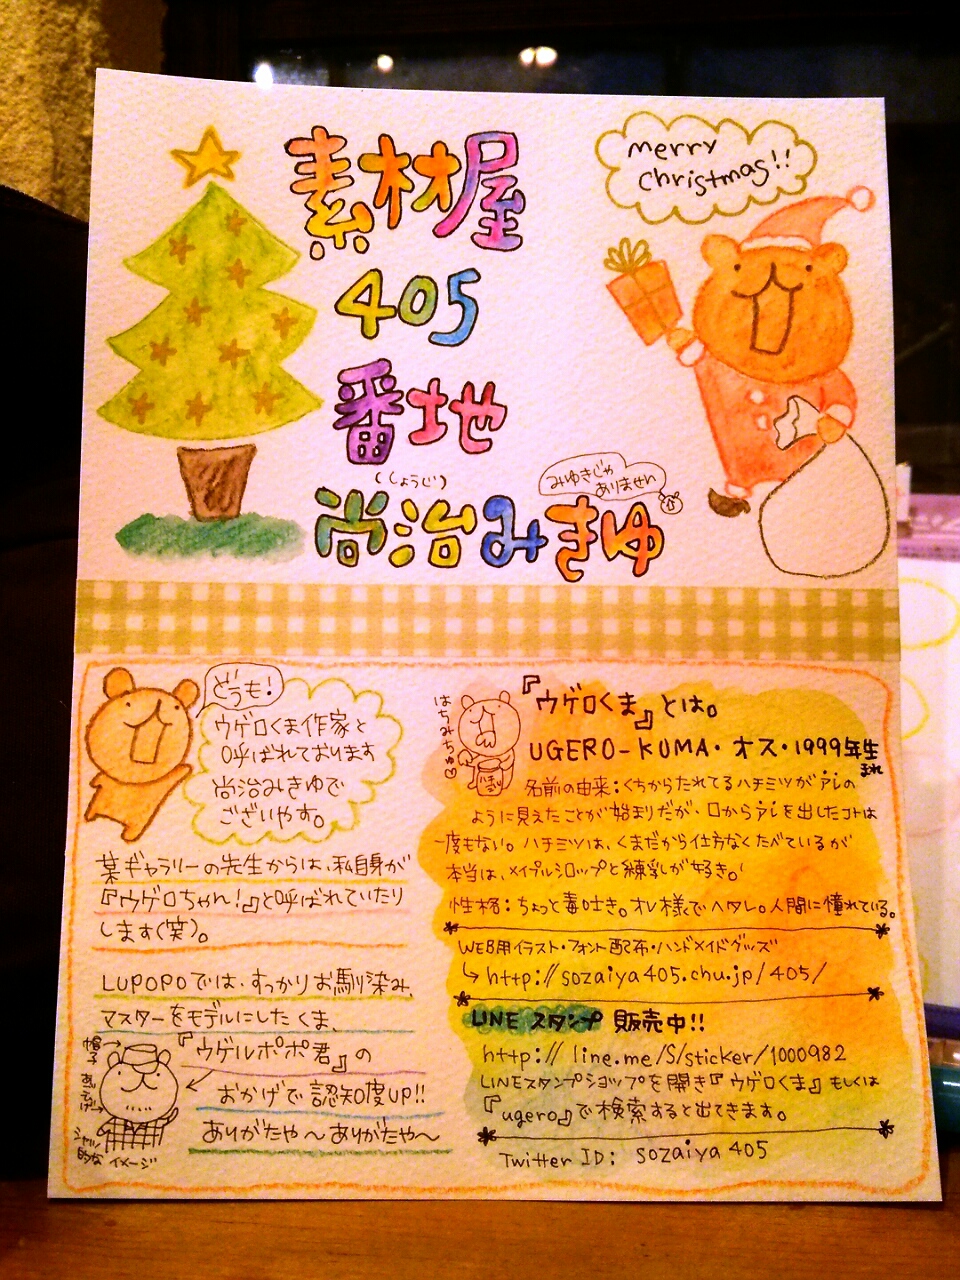 素材屋
405
番地
(しょうじ)
尚治みきゆ
みゆきじゃ
ありません
merry
christmas!!
どうも!
ウゲロくま作家と
呼ばれております
尚治みきゆで
ございやす。
某ギャラリーの先生からは、私自身が
『ウゲロちゃん!』と呼ばれていたり
します(笑)。
LUPOPOでは、すっかりお馴染み、
マスターをモデルにしたくま、
『ウゲルポポ君』の
おかげで認知度UP!!
ありがたや〜ありがたや〜
帽子
あごひげ
シャツ
的な
イメージ
はちみちゅ♡
ハチミツ
『ウゲロくま』とは。
UGERO-KUMA・オス・1999年生まれ
名前の由来:くちからたれてるハチミツがアレの
ように見えたことが始まりだが、口からアレを出したコトは
一度もない。ハチミツは、くまだから仕方なくたべているが
本当は、メイプルシロップと練乳が好き。
性格:ちょっと毒吐き。オレ様でヘタレ。人間に憧れている。
WEB用イラスト・フォント配布・ハンドメイドグッズ
↳http://sozaiya405.chu.jp/405/
LINEスタンプ 販売中!!
http://line.me/S/sticker/1000982
LINEスタンプショップを開き『ウゲロくま』もしくは
『ugero』で検索すると出てきます。
Twitter ID: sozaiya405